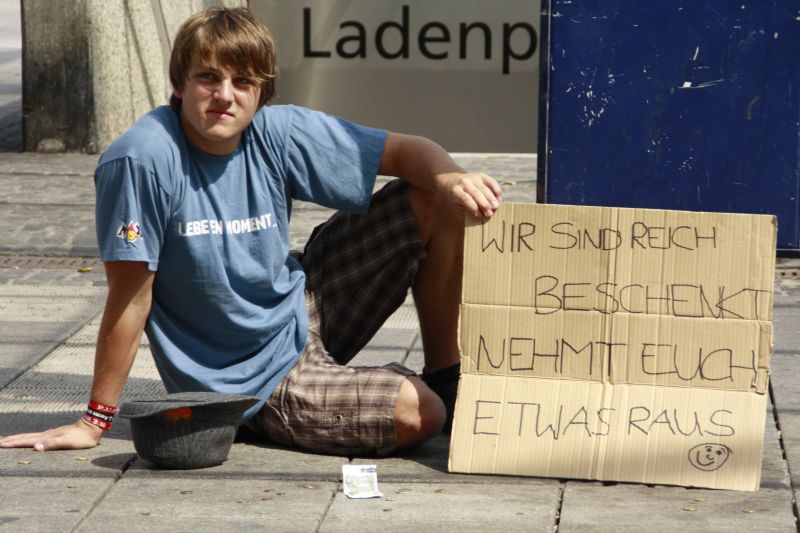 Ladenp
LEBE EN MOMENT.
WIR SIND REICH
BESCHENKT
NEHMT EUCH
ETWAS RAUS